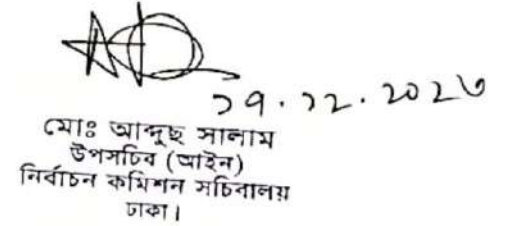 ১৭.১২.২০২৩
মোঃ আব্দুছ সালাম
উপসচিব (আইন)
নির্বাচন কমিশন সচিবালয়
ঢাকা।